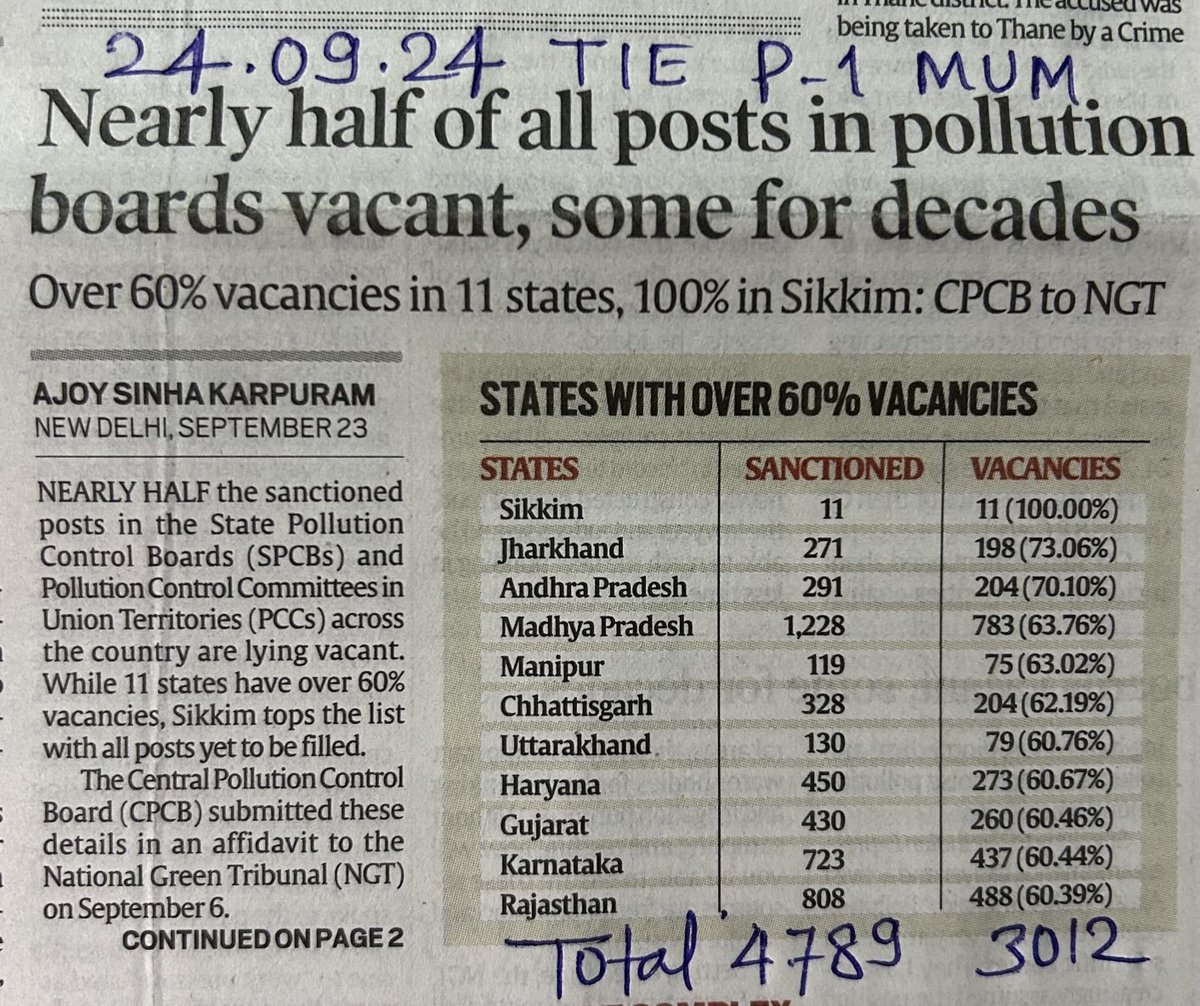 being taken to Thane by a Crime
24.09.24 TIE P-1 MUM
Nearly half of all posts in pollution
boards vacant, some for decades
Over 60% vacancies in 11 states, 100% in Sikkim: CPCB to NGT
AJOY SINHA KARPURAM
NEW DELHI, SEPTEMBER 23
NEARLY HALF the sanctioned
posts in the State Pollution
Control Boards (SPCBs) and
Pollution Control Committees in
Union Territories (PCCs) across
the country are lying vacant.
While 11 states have over 60%
vacancies, Sikkim tops the list
with all posts yet to be filled.
The Central Pollution Control
Board (CPCB) submitted these
details in an affidavit to the
National Green Tribunal (NGT)
on September 6.
CONTINUED ON PAGE 2
STATES WITH OVER 60% VACANCIES
STATES SANCTIONED VACANCIES
Sikkim 11 11 (100.00%)
Jharkhand 271 198 (73.06%)
Andhra Pradesh 291 204 (70.10%)
Madhya Pradesh 1,228 783 (63.76%)
Manipur 119 75 (63.02%)
Chhattisgarh 328 204 (62.19%)
Uttarakhand 130 79 (60.76%)
Haryana 450 273 (60.67%)
Gujarat 430 260 (60.46%)
Karnataka 723 437 (60.44%)
Rajasthan 808 488 (60.39%)
Total 4789 3012